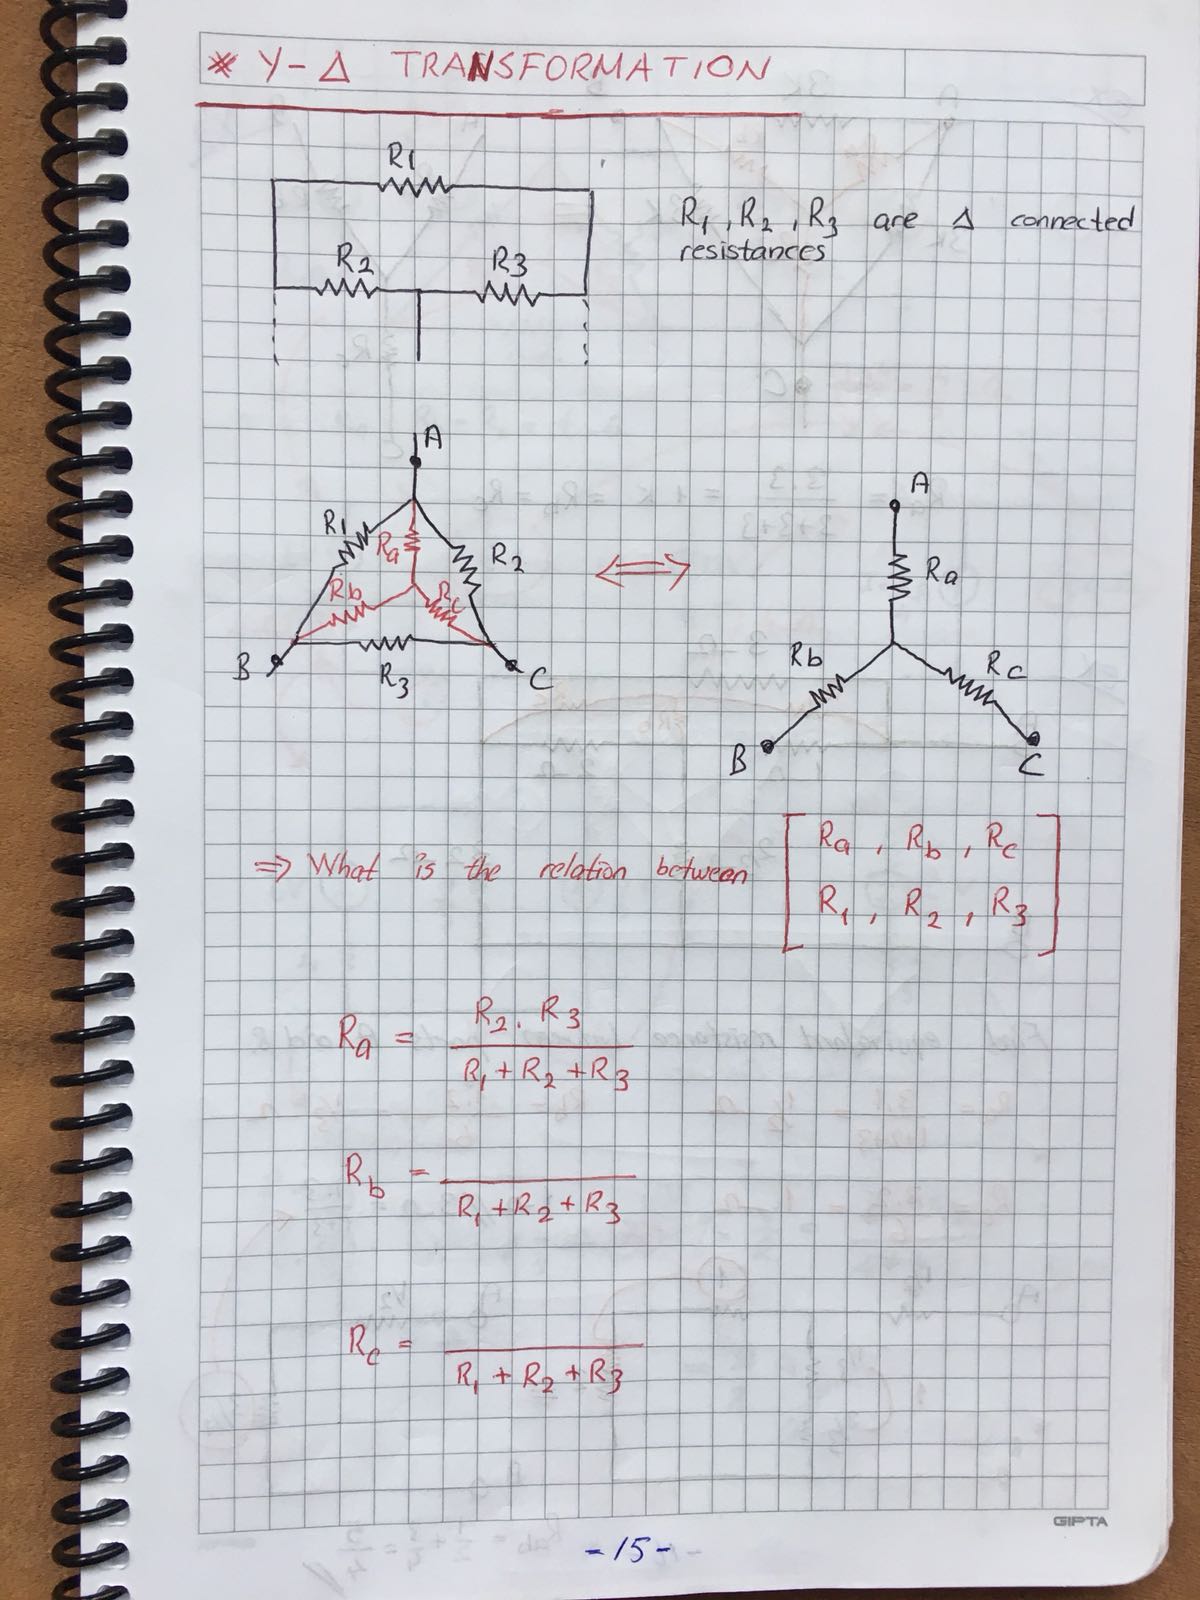 * Y-Δ TRANSFORMATION
R1
R1, R2, R3 are Δ connected
resistances
R2 R3
A
A
R1 Ra R2
Ra
Rb Rc
Rb Rc
B R3 C
B C
⇒ What is the relation between [Ra, Rb, Rc
R1, R2, R3]
Ra = R2. R3
R1 + R2 + R3
Rb =
R1 + R2 + R3
Rc =
R1 + R2 + R3
GIPTA
-15-